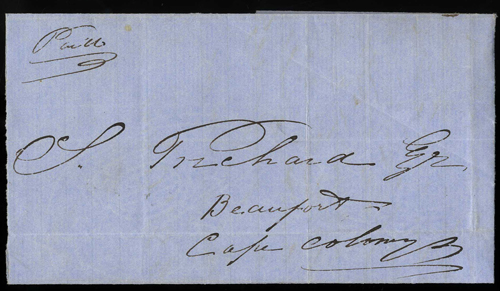 Paid
S. Trichard Esqr
Beaufort
Cape Colony